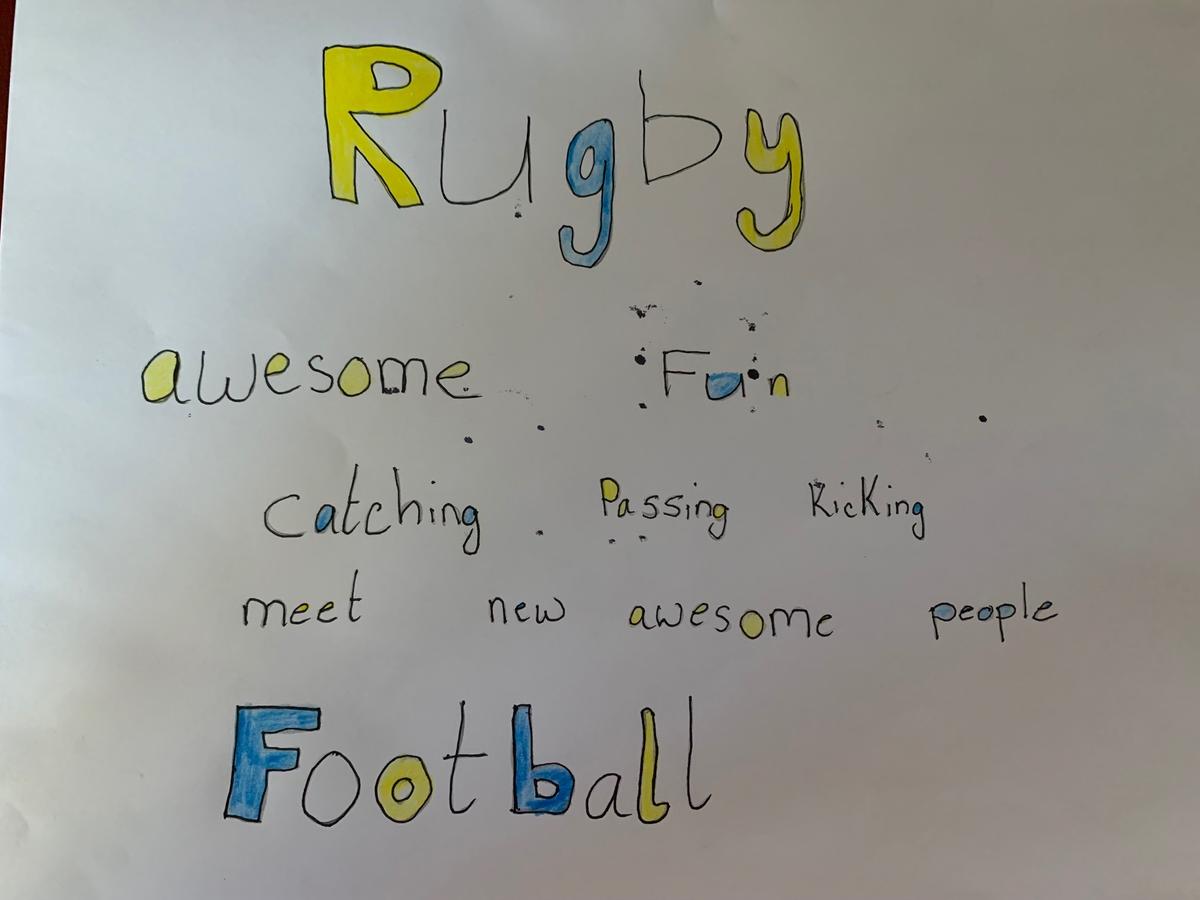 Rugby
awesome Fun
catching Passing Kicking
meet new awesome people
Football